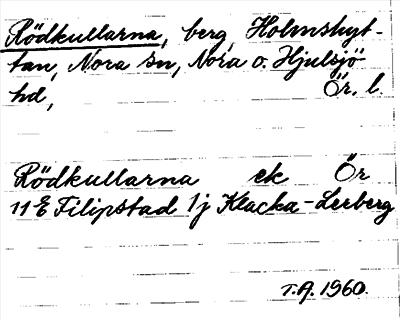 Rödkullarna, berg, Holmshyt-
tan, Nora sn, Nora o. Hjulsjö
hd, Ör. l.
Rödkullarna ek Ör
11 E Filipstad 1j Klacka-Lerberg
T.A. 1960.